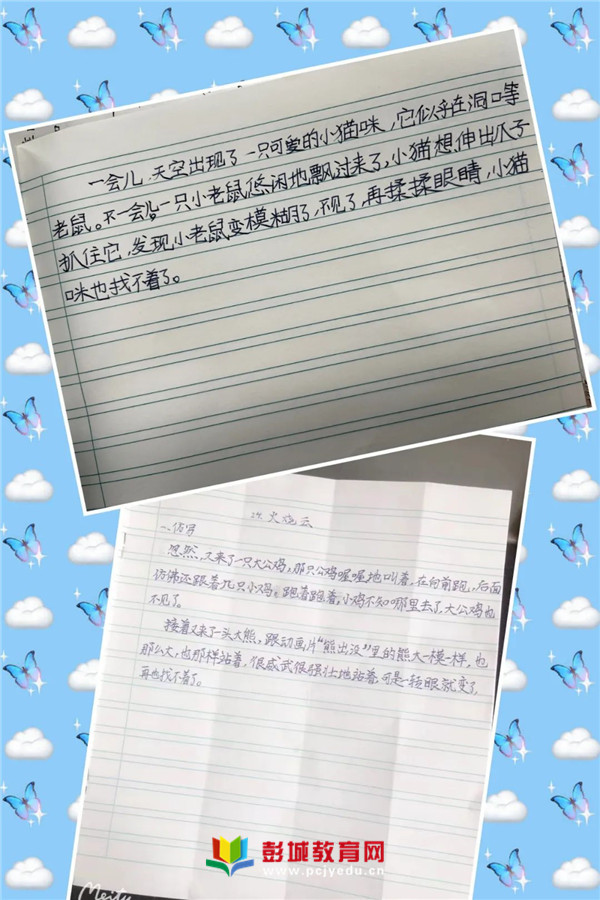 一会儿，天空出现了一只可爱的小猫咪，它似乎在洞口等
老鼠。不一会儿一只小老鼠悠闲地飘过来了，小猫想伸出爪子
抓住它，发现小老鼠变模糊了，不见了，再揉揉眼睛，小猫
咪也找不着了。
24.火烧云
一、仿写
忽然，又来了一只大公鸡，那只公鸡喔喔地叫着，在向前跑，后面
仿佛还跟着几只小鸡。跑着跑着，小鸡不知哪里去了，大公鸡也
不见了。
接着又来了一头大熊，跟动画片“熊出没”里的熊大一模一样，也
那么大，也那样站着，很威武很强壮地站着，可是一转眼就变了，
再也找不着了。
彭城教育网
www.pcjyedu.cn
Meitu